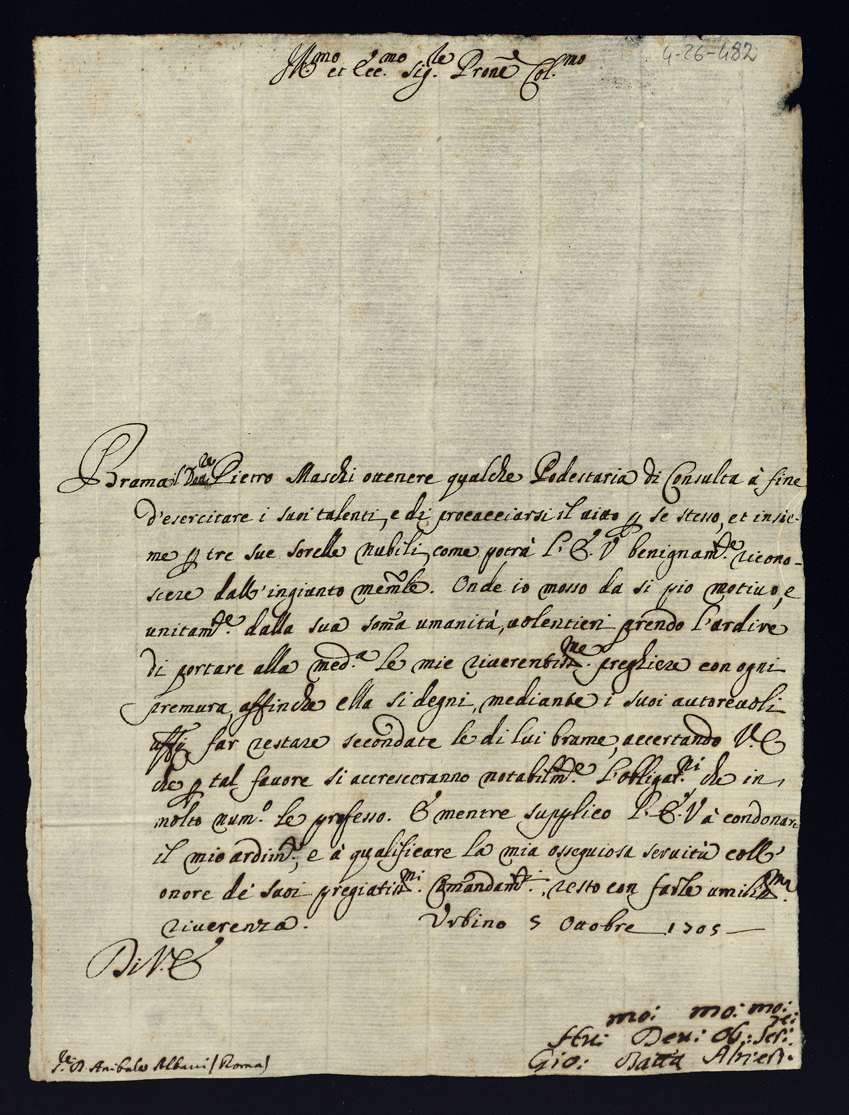 Ill.mo et Ecc.mo Sig.re Prone Col.mo
4-26-482
Brama il Dott.re Pietro Maschi ottenere qualche Podestaria di Consulta à fine
d'esercitare i suoi talenti, e di procacciarsi il vitto p se stesso, et insie-
me p tre sue sorelle nubili, come potrà l'E. V. benignam.te ricono-
scere dall'ingiunto mem.le. Onde io mosso da si pio motivo, e
unitam.te dalla sua somma umanità, volentieri prendo l'ardire
di portare alla med.a le mie riverentiss.me preghiere con ogni
premura, affinche ella si degni, mediante i suoi autorevoli
uffij far restare secondate le di lui brame, accertando V. E.
che p tal favore si accresceranno notabilm.te l'obligaz.ni che in
molto num.o le professo. E mentre supplico l'E. V. à condonare
il mio ardim.to, e à qualificare la mia ossequiosa servitù coll'
onore de' suoi pregiatiss.mi comandam.ti, resto con farle umiliss.ma
riverenza. Urbino 5 Ottobre 1705
Di V. E.
mo: mo: mo: re:
Hu: Dev: Ob: Ser:
Gio: Batta
S.r D. Anibale Albani (Roma)